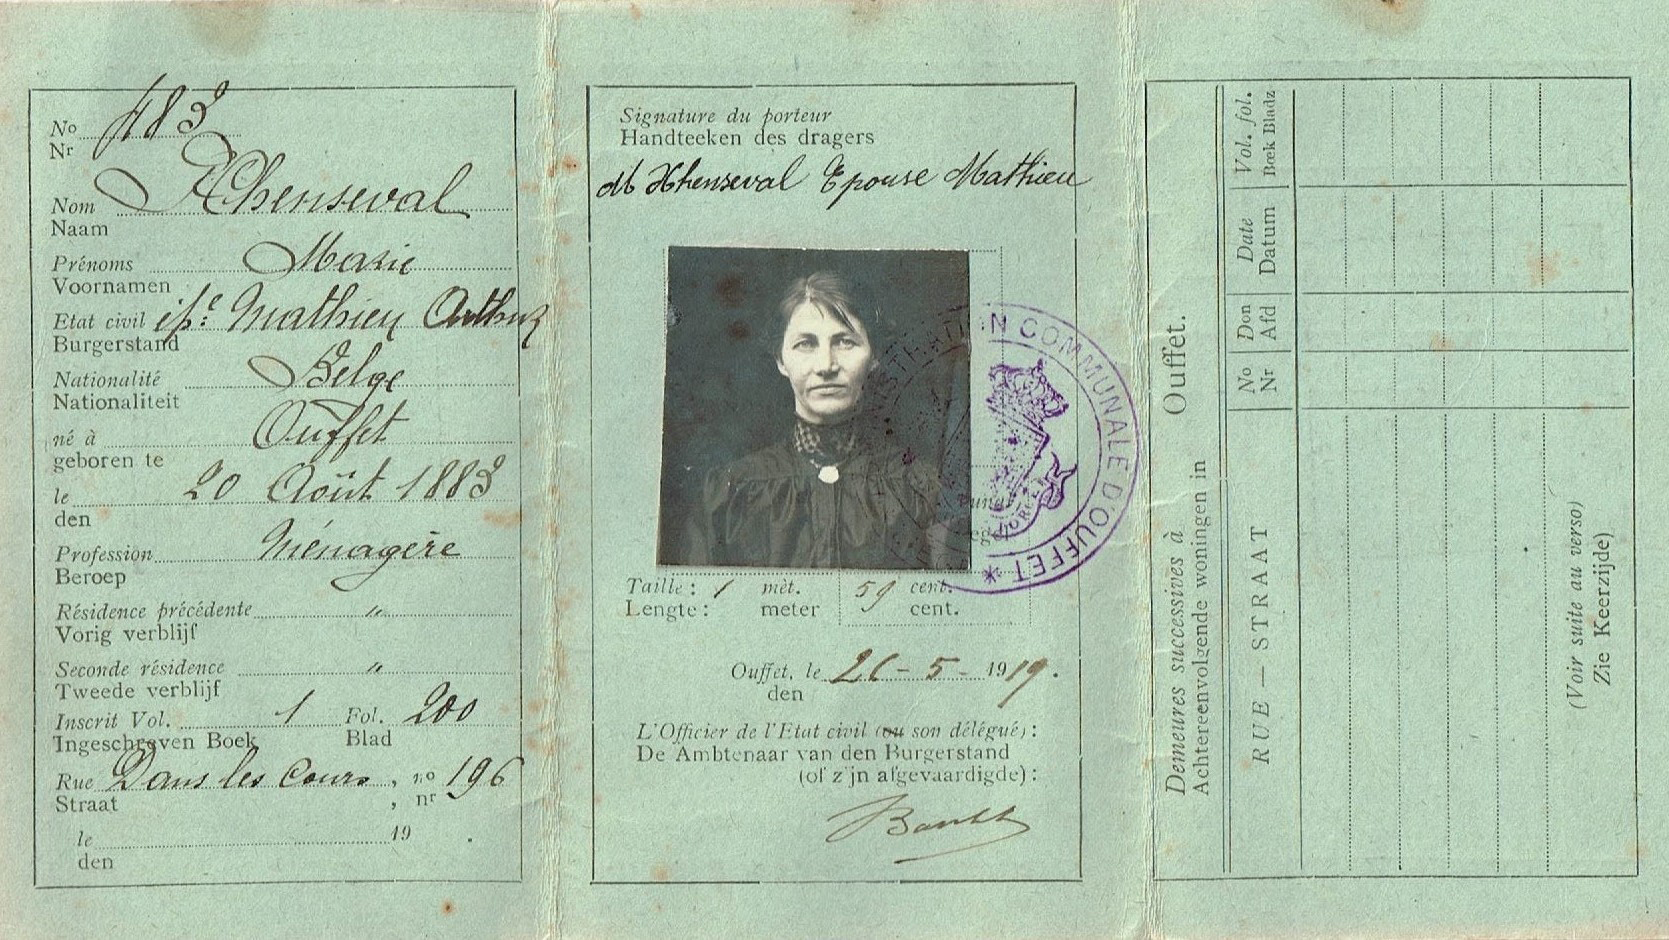 No
Nr 483
Nom Xhenseval
Naam
Prénoms Marie
Voornamen
Etat civil épse Mathieu Arthur
Burgerstand
Nationalité Belge
Nationaliteit
né à Ouffet
geboren te
le 20 Août 1883
den
Profession Ménagère
Beroep
Résidence précédente "
Vorig verblijf
Seconde résidence "
Tweede verblijf
Inscrit Vol. 1 Fol. 200
Ingeschreven Boek Blad
Rue Dans les Cours, no 196
Straat , nr
le 19 .
den
Signature du porteur
Handteeken des dragers
M Xhenseval Epouse Mathieu
ADMINISTRATION COMMUNALE D'OUFFET *
Taille : 1 mèt. 59 cent.
Lengte : meter cent.
Ouffet, le 26-5-1919.
den
L'Officier de l'Etat civil (ou son délégué) :
De Ambtenaar van den Burgerstand
(of zijn afgevaardigde) :
Demeures successives à Ouffet.
Achtereenvolgende woningen in
RUE — STRAAT
No
Nr
Don
Afd
Date
Datum
Vol. fol.
Boek Bladz
(Voir suite au verso)
Zie Keerzijde)